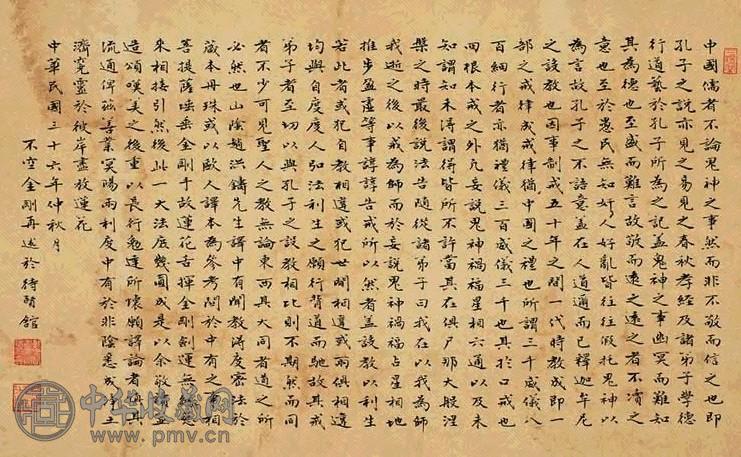 中國儒者不論鬼神之事然而非不敬而信之也即
孔子之說亦見之易見之春秋孝經及諸弟子學德
行道藝於孔子所為之記蓋鬼神之事幽冥而難知
其為德也至盛而難言故敬而遠之遠之者不瀆之
意也至於愚民無知奸人好亂皆往往假托鬼神以
為言故孔子之不語意蓋在人道通而已釋迦牟尼
之設教也因事制戒五十年之間一代時教成即一
部之戒律戒律猶中國之禮也所謂三千威儀八
百細行者亦猶禮儀三百威儀三千也其於口戒也
四根本戒之外凡妄說鬼神禍福星相六通以及未
知謂知未得謂得皆所不許當其在俱尸那大般涅
槃之時最後說法告隨從諸弟子曰我在以我為師
我逝之後以戒為師而於妄說鬼神禍福占星相地
推步盈虛等事諄諄告戒所以然者蓋設教以利生
若此者或犯自教相違或犯世間相違或兩俱相違
均與自度度人弘法利生之願行背道而馳故其戒
弟子者至切以與孔子之設教相比則不期然而同
者不少可見聖人之教無論東西具大同者道之所
必然也山陰趙洪鑄先生譯中有聞教得度密法於
藏本丹珠或以歐人譯本為參考間於中有之
菩提薩埵金剛手故蓮花舌揮金剛劍運無
來相接引然後此一大法底幾圓成是以余敬
造頌嘆美之後重以長行勉達所懷願譯論者
流通俾弱善業冥陽兩利度中有於非陰悉成
濟冤靈於彼岸盡放蓮花
中華民國三十六年仲秋月
不空金剛再述於待
中华收藏网
www.pmv.cn